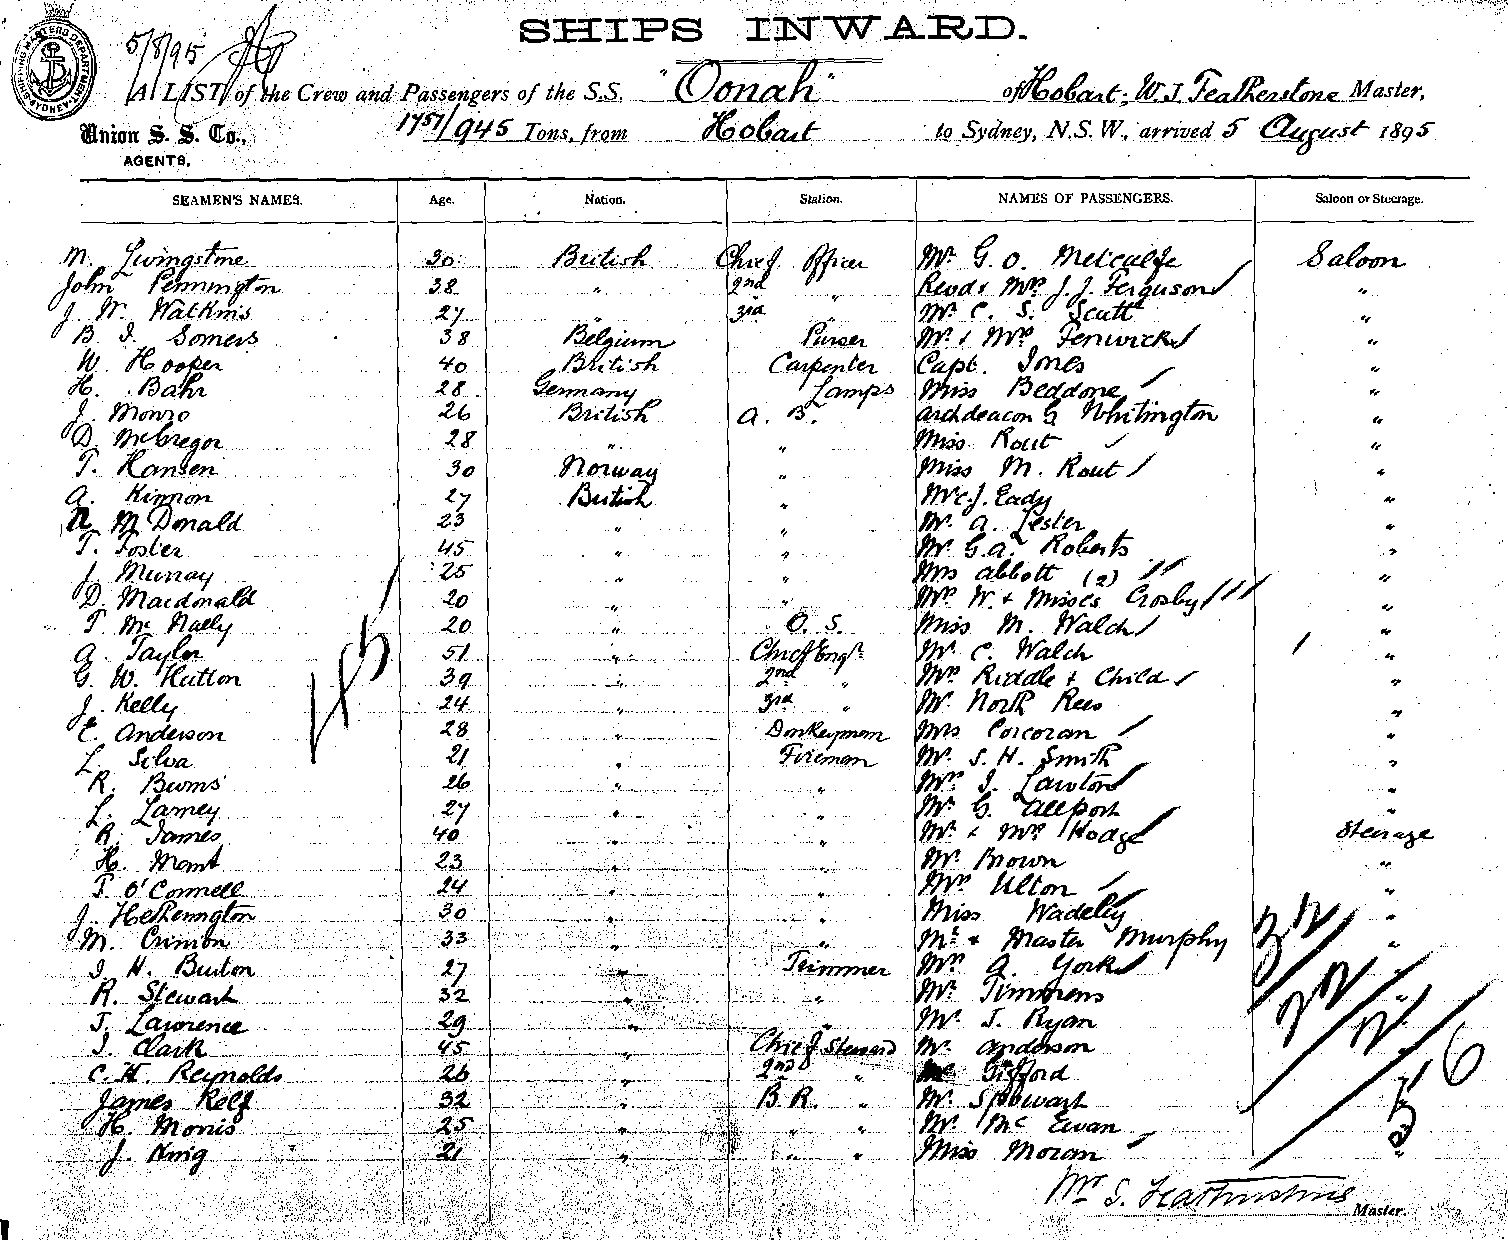 SHIPS INWARD.
5/8/95
SHIPPING MASTERS DEPARTMENT SYDNEY
A LIST of the Crew and Passengers of the S.S. "Oonah" of Hobart: W. J. Featherstone Master,
Union S. S. Co., 1757/945 Tons, from Hobart to Sydney, N.S.W., arrived 5 August 1895
AGENTS.
SEAMEN'S NAMES. Age. Nation. Station. NAMES OF PASSENGERS. Saloon or Steerage.
M. Livingstone 30 British Chief Officer Mr. G. O. Metcalfe Saloon
John Pennington 38 " 2nd " Revd & Mrs J. J. Ferguson "
J. W. Watkins 27 " 3rd " Mr. C. S. Scutt "
B. I. Somers 38 Belgium Purser Mr. & Mrs Fenwick "
W. Hooper 40 British Carpenter Capt. Jones "
H. Bahr 28 Germany Lamps Miss Beddone "
J. Monro 26 British A. B. Archdeacon G Whitington "
D. McGregor 28 " " Miss Rout "
T. Hansen 30 Norway " Miss M. Rout "
A. Kinnon 27 British " Mr C. J. Eady "
M Donald 23 " " Mr. A. Lester "
T. Foster 45 " " Mr. G. A. Roberts "
J. Murray 25 " " Mrs Abbott (2) "
D. Macdonald 20 " " Mrs W. & Misses Crosby "
T. McNally 20 " O. S. Miss M. Walch "
A. Taylor 51 " Chief Engr. Mr. C. Walch "
G. W. Hutton 39 " 2nd " Mrs Riddle & Child "
J. Kelly 24 " 3rd " Mr. North Rees "
C. Anderson 28 " Donkeyman Mrs Corcoran "
L. Silva 21 " Fireman Mr. S. H. Smith "
R. Burns 26 " " Mrs I. Lawton "
L. Lamey 27 " " Mr. G. Allport "
R. James 40 " " Mr. & Mrs Hodge Steerage
H. Mant 23 " " Mr. Brown "
T. O'Connell 24 " " Mrs Ulton "
J. Hetherington 30 " " Miss Wadeley "
M. Crimion 33 " " Mr. & Master Murphy "
I. H. Burton 27 " Trimmer Mrs A. York
R. Stewart 32 " " Mr. Timmrens "
J. Lawrence 29 " " Mr. J. Ryan
I. Clark 45 " Chief Steward Mr. Anderson
C. H. Reynolds 26 " 2nd " Gifford
James Relf 32 " B R. " Mr. Spowart
H. Morris 25 " " " Mr. McEwan
J. King 21 " " " Miss Moran "
Master.